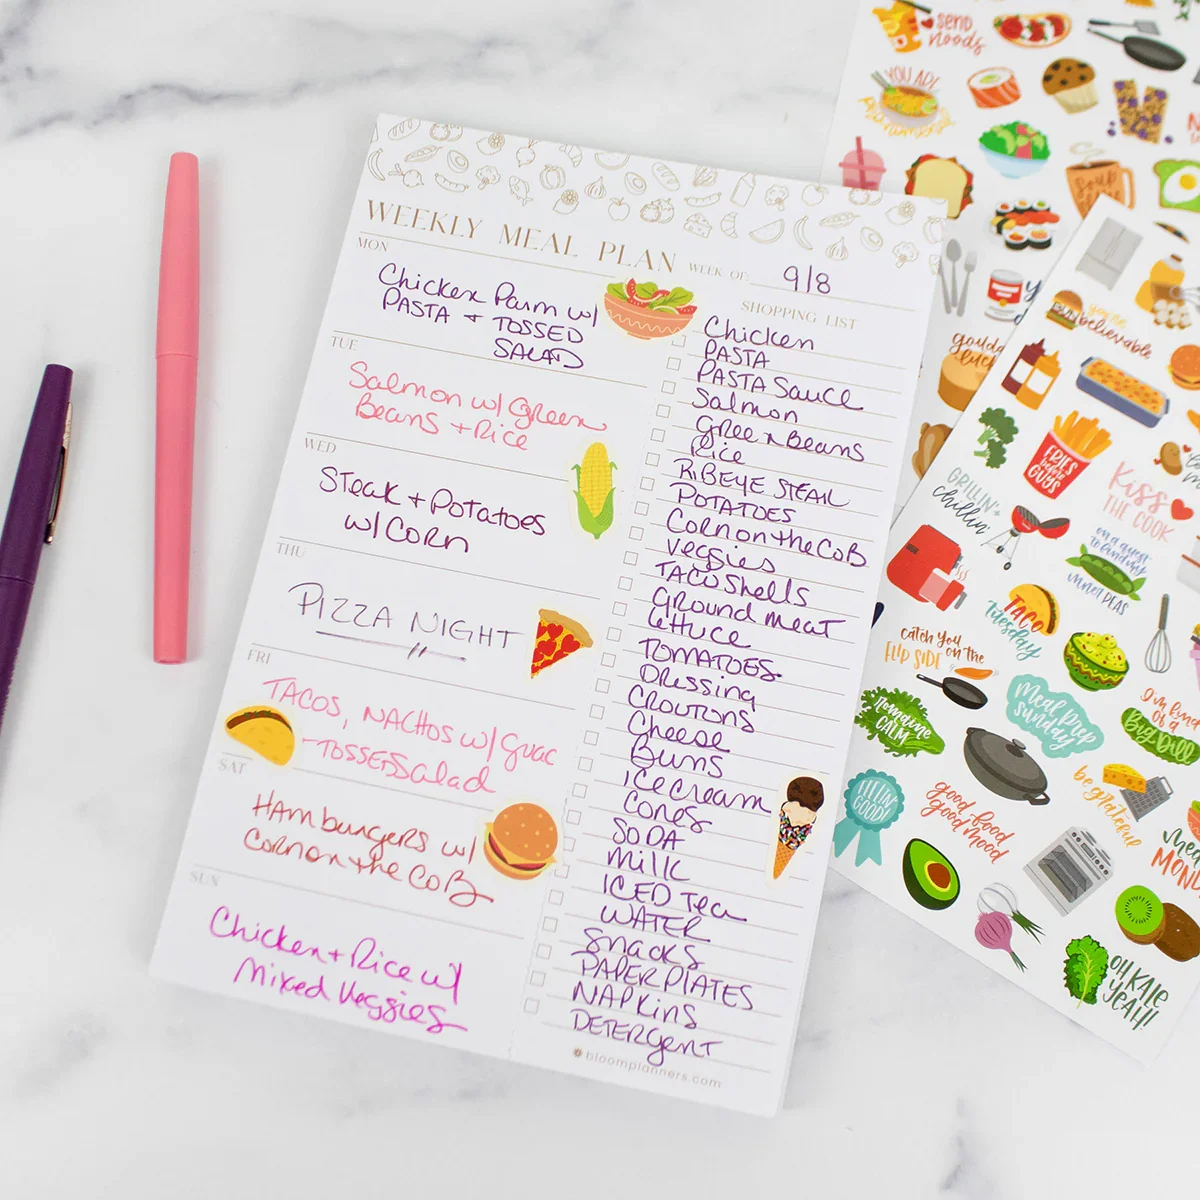 WEEKLY MEAL PLAN
WEEK OF: 9/8
MON
Chicken Parm w/
PASTA + TOSSED
SALAD
TUE
Salmon w/ Green
Beans + Rice
WED
Steak + Potatoes
w/ Corn
THU
PIZZA NIGHT
FRI
TACOS, NACHOS w/ guac
+ TOSSED Salad
SAT
HAmburgers w/
Corn on the CoB
SUN
Chicken + Rice w/
Mixed Veggies
SHOPPING LIST
Chicken
PASTA
PASTA Sauce
Salmon
Green Beans
Rice
RiBEYE STEAK
POTATOES
Corn on the CoB
Veggies
TACO Shells
Ground meat
lettuce
TOMATOES
Dressing
CROUTONS
Cheese
Buns
ice cream
Cones
SODA
Milk
ICED Tea
WATER
Snacks
PAPER PLATES
NAPkins
DETERgent
bloomplanners.com
send
noods
YOU ARE
SOUP
gouda
luck
you're
bunbelievable
FRIES
before
GUYS
GRILLIN' +
chillin'
KISS
THE COOK
on a quest
to find my
inner peas
TACO
Tuesday
catch you
on the
FLIP SIDE
Romaine
CALM
Meal prep
Sunday
I'm kind
of a
Big Dill
FEELIN'
GOOD!
good food
good mood
be grateful
MON
OH KALE
YEAH!